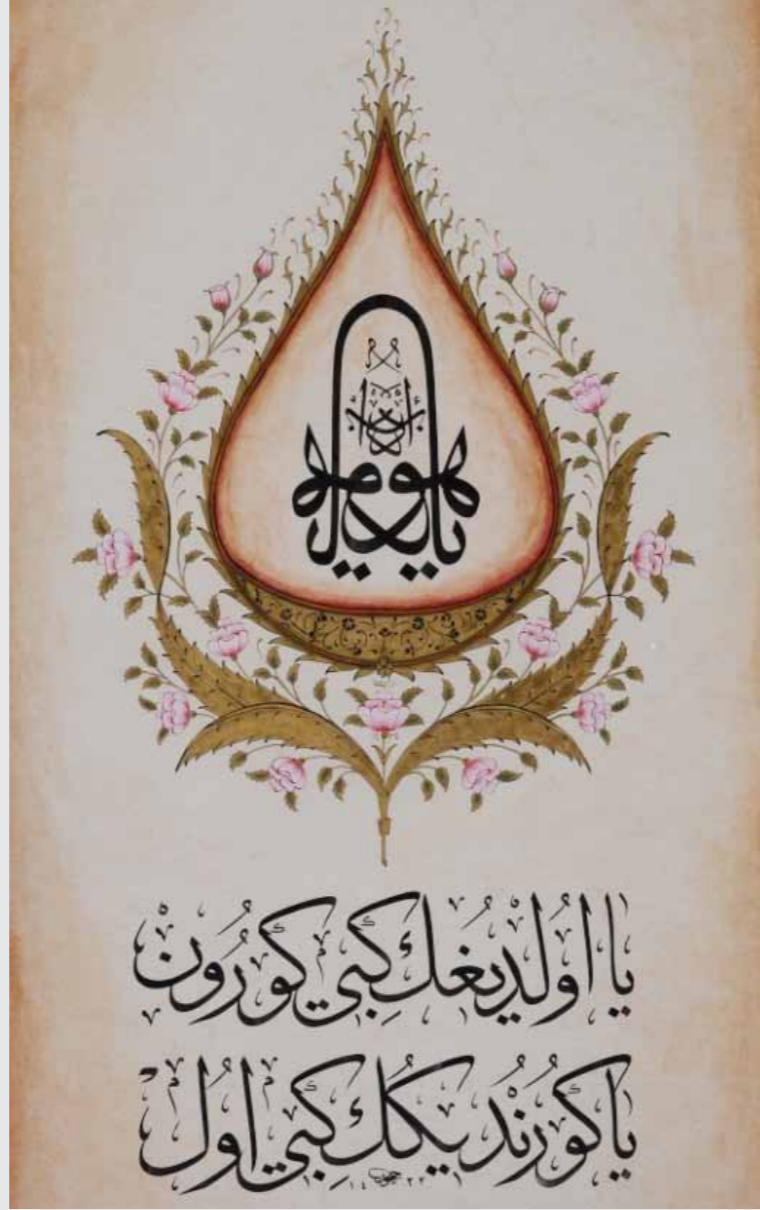 يا هو
يا اولديغك كبي كورون
يا كورنديكك كبي اول
١٤٢٢